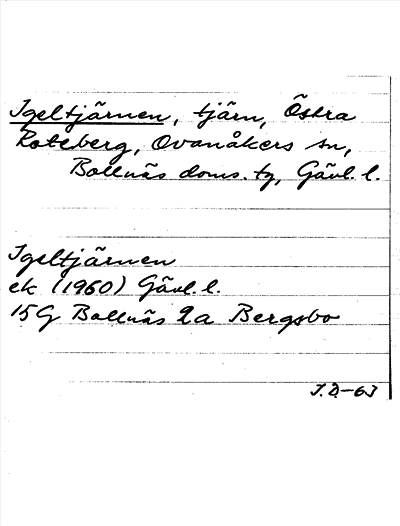 Igeltjärnen, tjärn, Östra
Roteberg, Ovanåkers sn,
Bollnäs doms. tg, Gävl. l.
Igeltjärnen
ek (1960) Gävl. l.
15G Bollnäs 2a Bergsbo
J.D-63